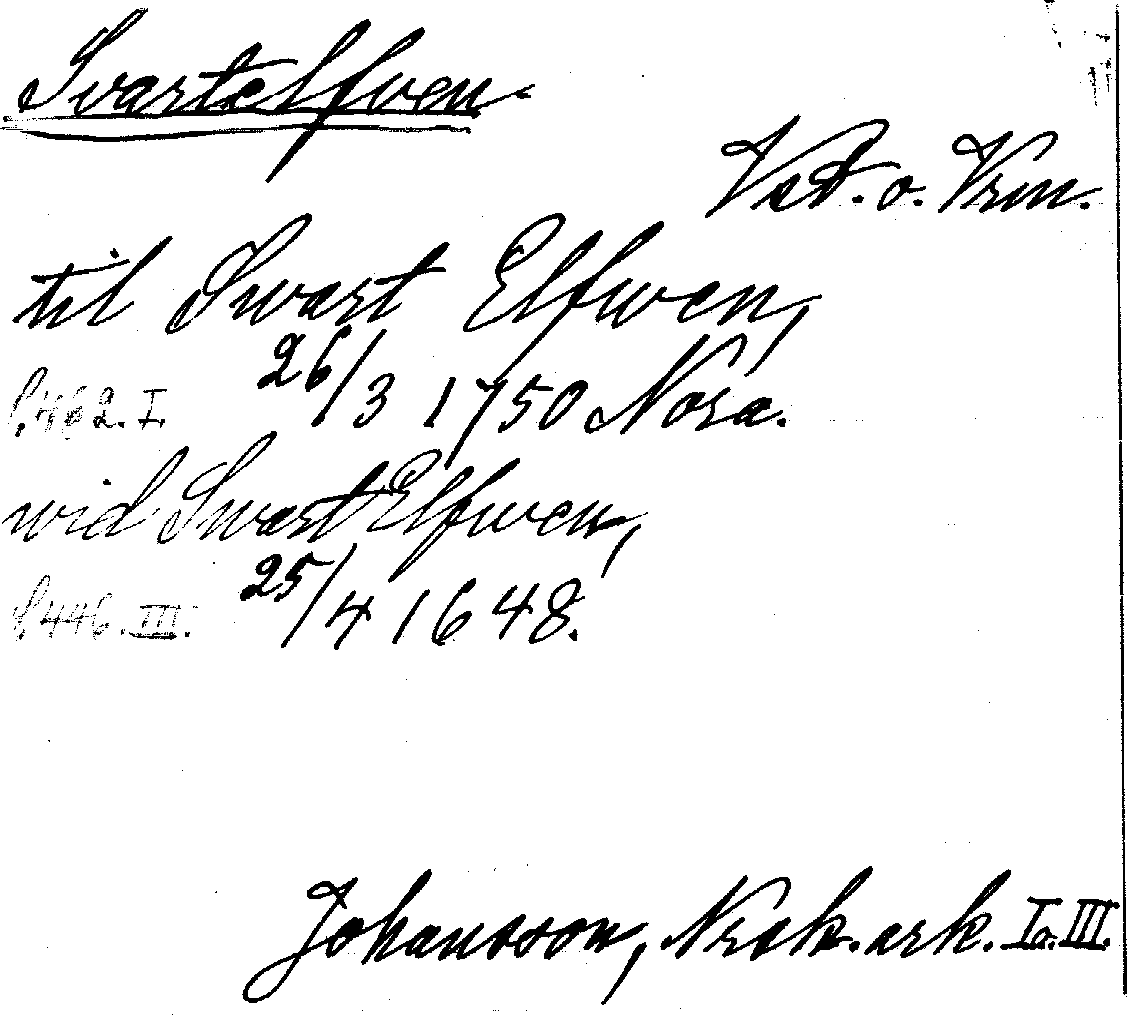 Svartelfwen
Vstl. o. Vrm.
til Swart Elfwen,
S. 462. I. 26/3 1750 Nora.
wid Swart Elfwen,
S. 446. III. 25/4 1648.
Johansson, Nrsk. ark. I o. III.